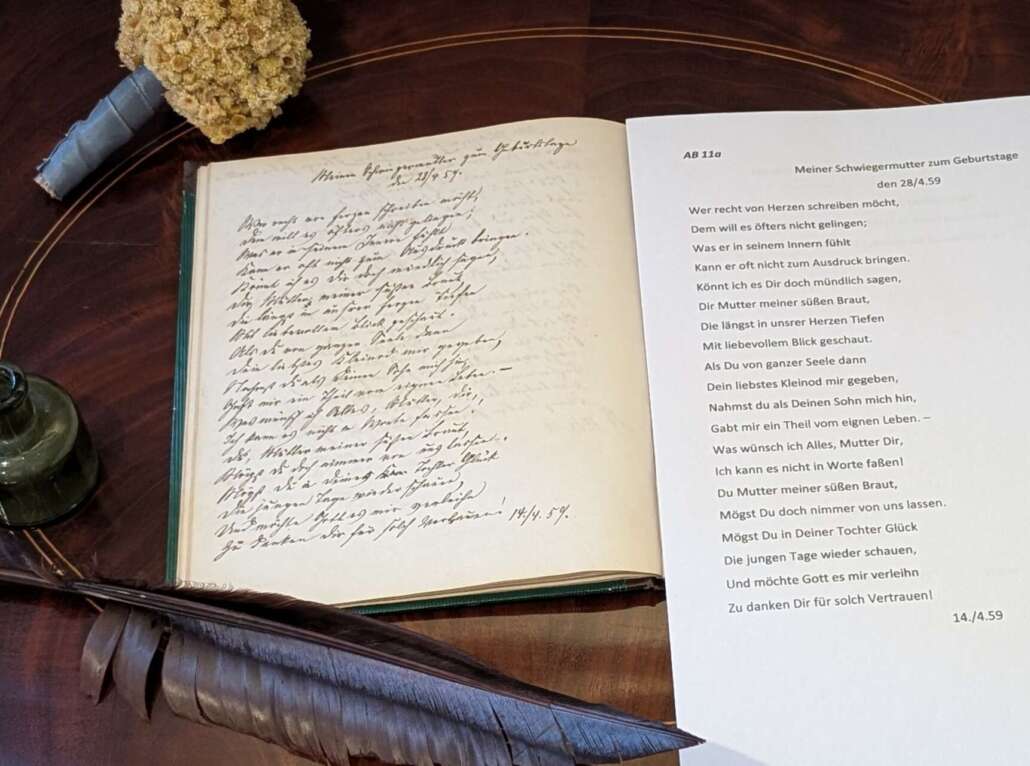 Meiner Schwiegermutter zum Geburtstage
den 28/4.59.
Wer recht von Herzen schreiben möcht,
Dem will es öfters nicht gelingen;
Was er in seinem Innern fühlt
Kann er oft nicht zum Ausdruck bringen.
Könnt ich es Dir doch mündlich sagen,
Dir Mutter meiner süßen Braut,
Die längst in unsrer Herzen Tiefen
Mit liebevollem Blick geschaut.
Als Du von ganzer Seele dann
Dein liebstes Kleinod mir gegeben,
Nahmst du als Deinen Sohn mich hin,
Gabt mir ein Theil vom eignen Leben. –
Was wünsch ich Alles, Mutter, Dir,
Ich kann es nicht in Worte faßen!
Du, Mutter meiner süßen Braut,
Mögst Du doch nimmer von uns lassen.
Mögst Du in Deiner Tochter Glück
Die jungen Tage wieder schauen,
Und möchte Gott es mir verleihn
Zu danken Dir für solch Vertrauen! 14./4.59.
AB 11a
Meiner Schwiegermutter zum Geburtstage
den 28/4.59
Wer recht von Herzen schreiben möcht,
Dem will es öfters nicht gelingen;
Was er in seinem Innern fühlt
Kann er oft nicht zum Ausdruck bringen.
Könnt ich es Dir doch mündlich sagen,
Dir Mutter meiner süßen Braut,
Die längst in unsrer Herzen Tiefen
Mit liebevollem Blick geschaut.
Als Du von ganzer Seele dann
Dein liebstes Kleinod mir gegeben,
Nahmst du als Deinen Sohn mich hin,
Gabt mir ein Theil vom eignen Leben. –
Was wünsch ich Alles, Mutter Dir,
Ich kann es nicht in Worte faßen!
Du Mutter meiner süßen Braut,
Mögst Du doch nimmer von uns lassen.
Mögst Du in Deiner Tochter Glück
Die jungen Tage wieder schauen,
Und möchte Gott es mir verleihn
Zu danken Dir für solch Vertrauen!
14./4.59